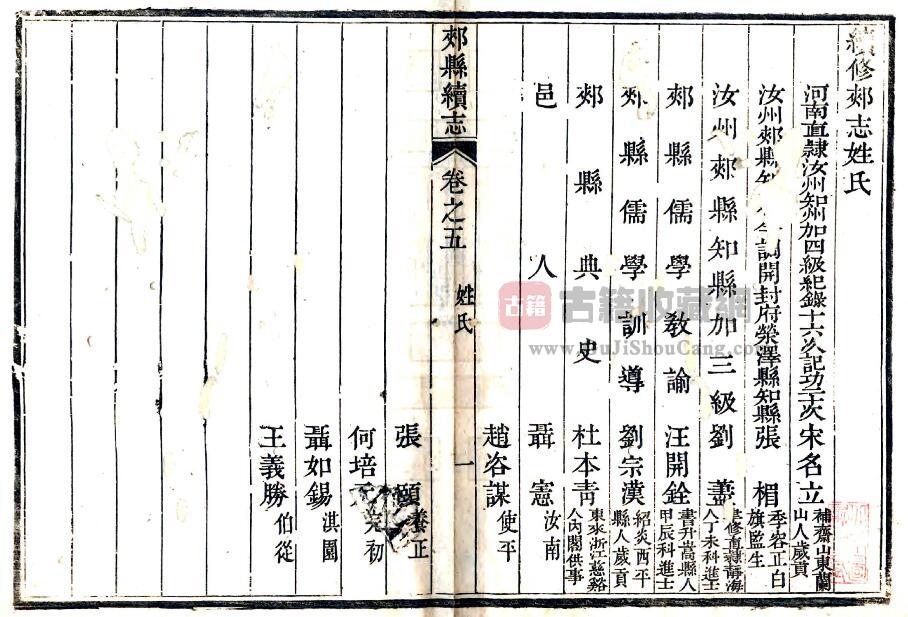 續修郟志姓氏
河南直隸汝州知州加四級紀錄十六次記功二次宋名立 補齋山東蘭山人歲貢
汝州郟縣知 調開封府滎澤縣知縣張楣 季容正白旗監生
汝州郟縣知縣加三級劉 修直隸靜海人丁未科進士
郟縣儒學教諭 汪開銓 書升嵩縣人甲辰科進士
郟縣儒學訓導 劉宗漢 紹炎西平縣人歲貢
郟縣典史 杜本青 東來浙江慈谿人內閣供事
邑人 聶憲 汝南
趙咨謀 使平
郟縣續志 卷之五 姓氏 一
張頤 養正
何培 初
聶如錫 淇園
王義勝 伯從
古籍 古籍收藏網
www.GuJiShouCang.com